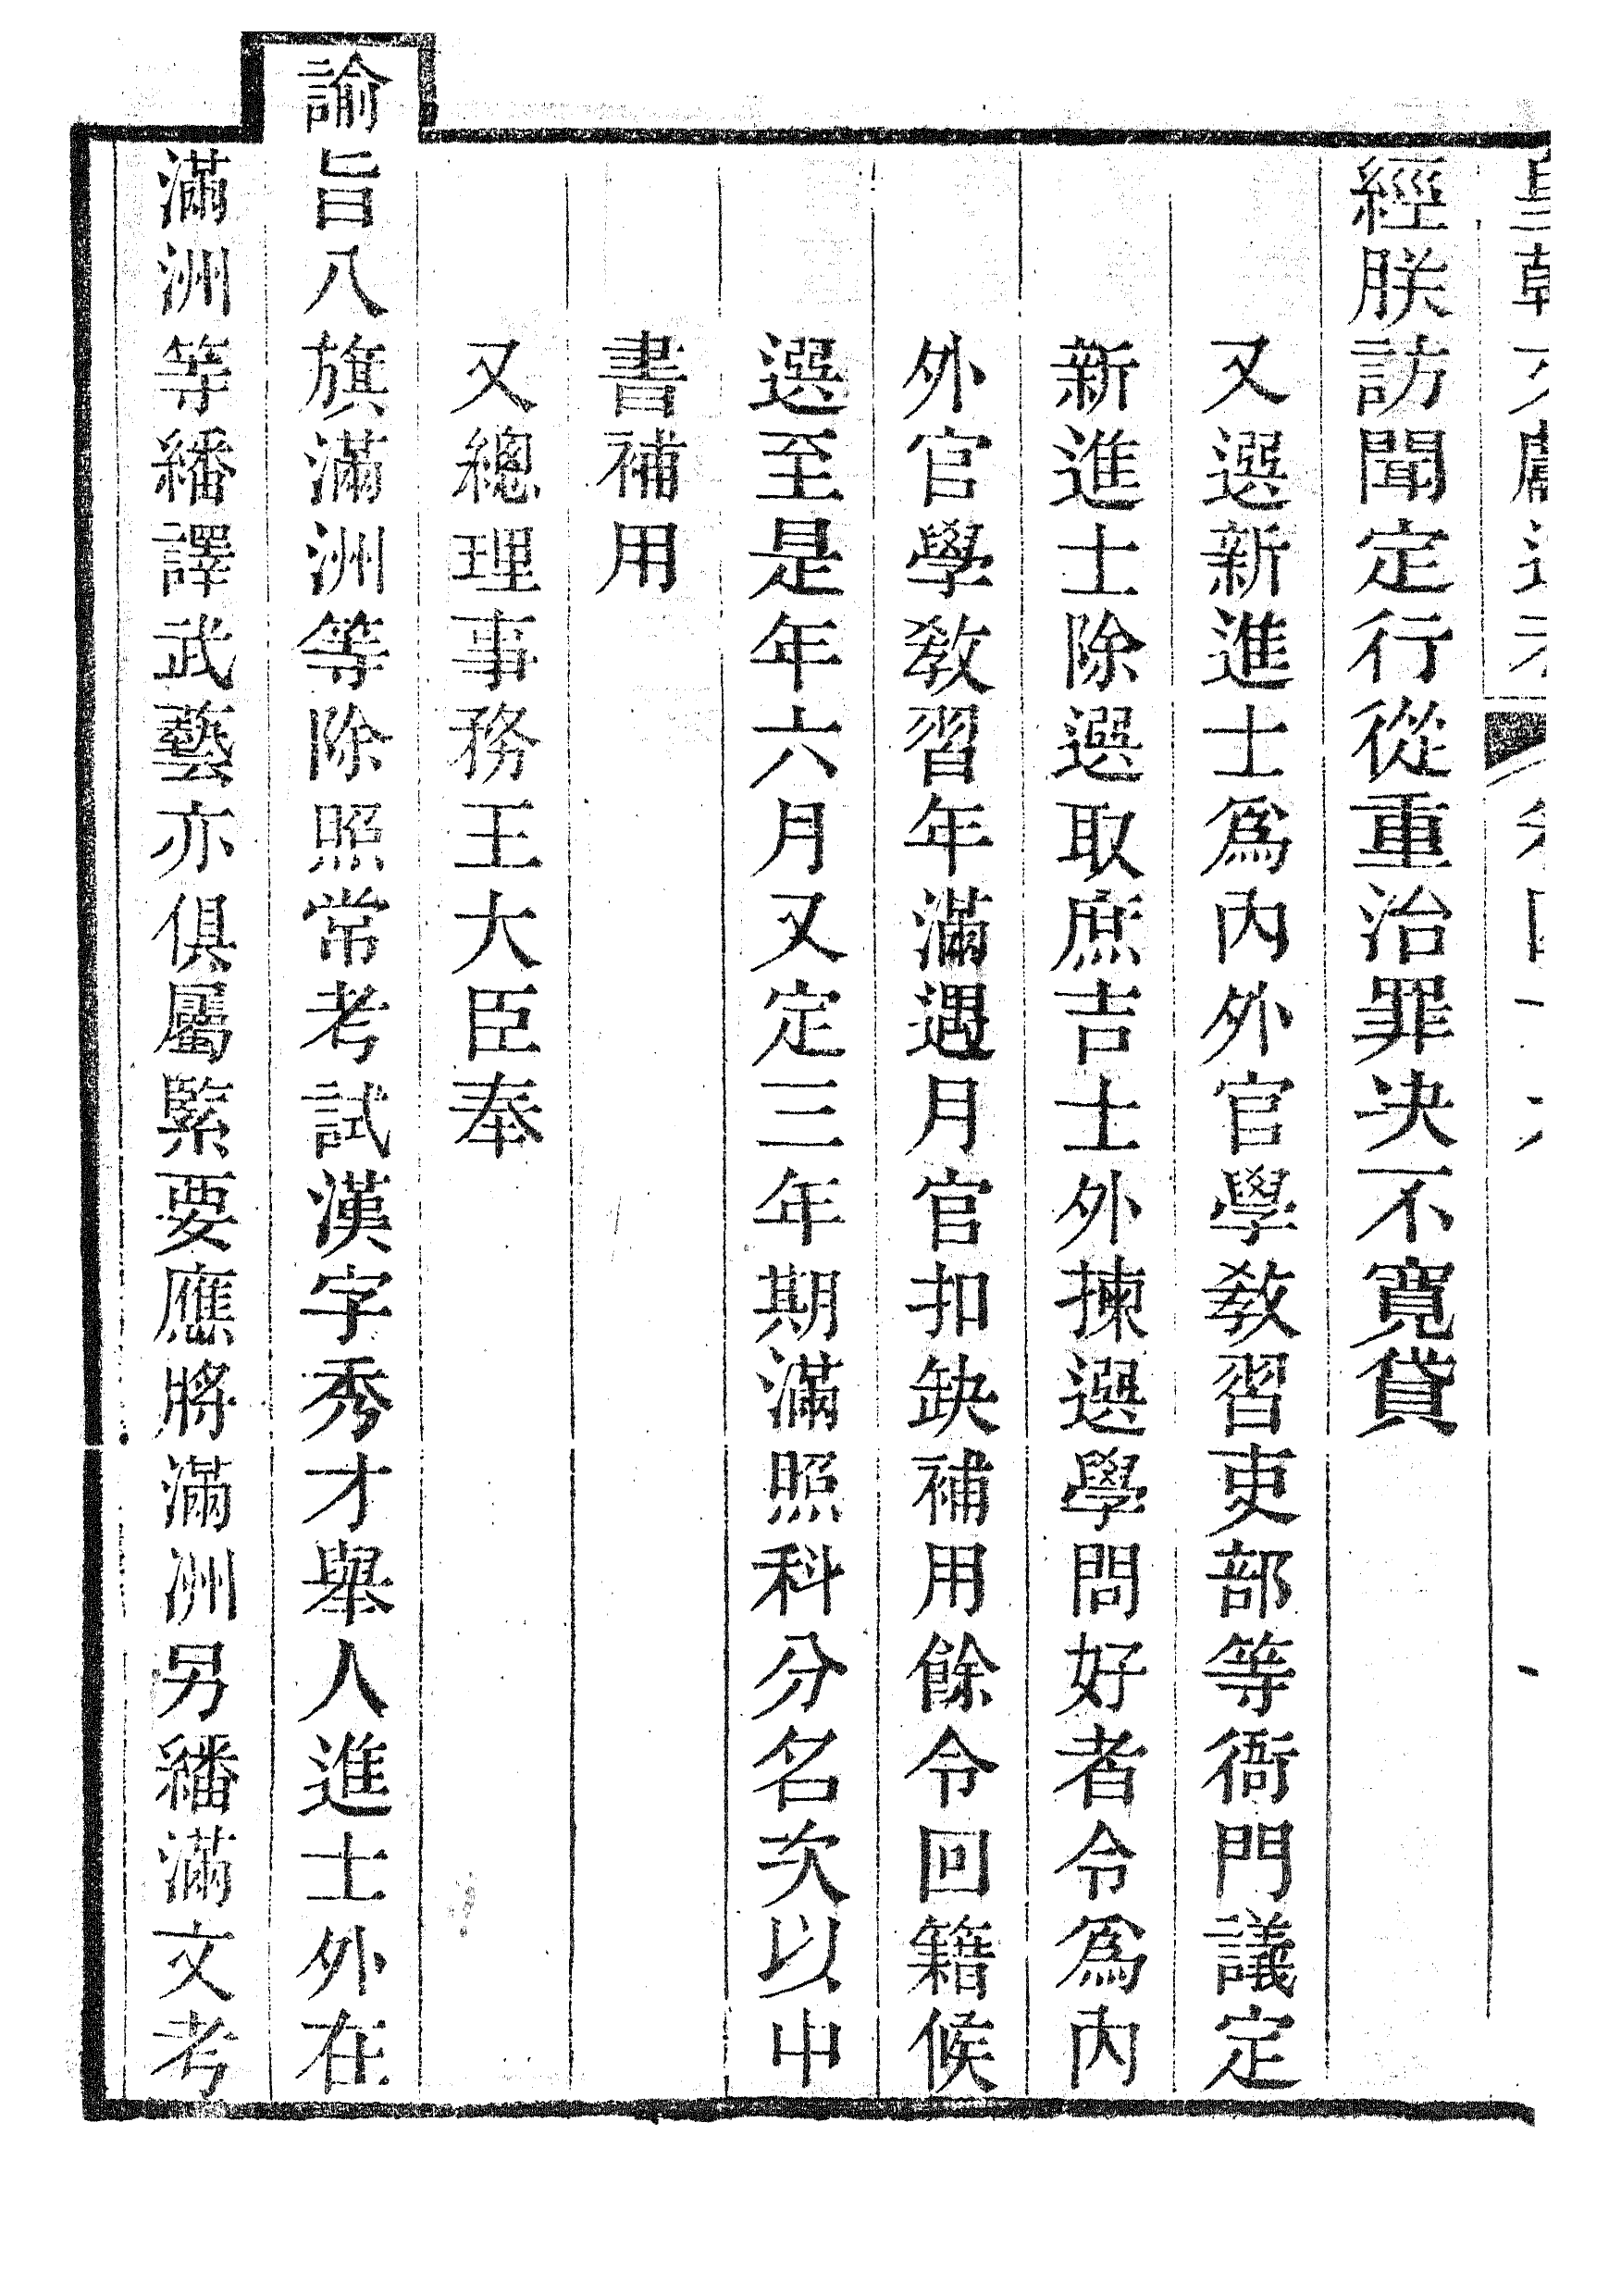 經朕訪聞定行從重治罪决不寛貸
又選新進士爲內外官學敎習吏部等衙門議定
新進士除選取庶吉士外揀選學問好者令爲內
外官學敎習年滿遇月官扣缺補用餘令回籍候
選至是年六月又定三年期滿照科分名次以中
書補用
又總理事務王大臣奉
諭旨八旗滿洲等除照常考試漢字秀才舉人進士外在
滿洲等繙譯武藝亦俱屬緊要應將滿洲另繙滿文考